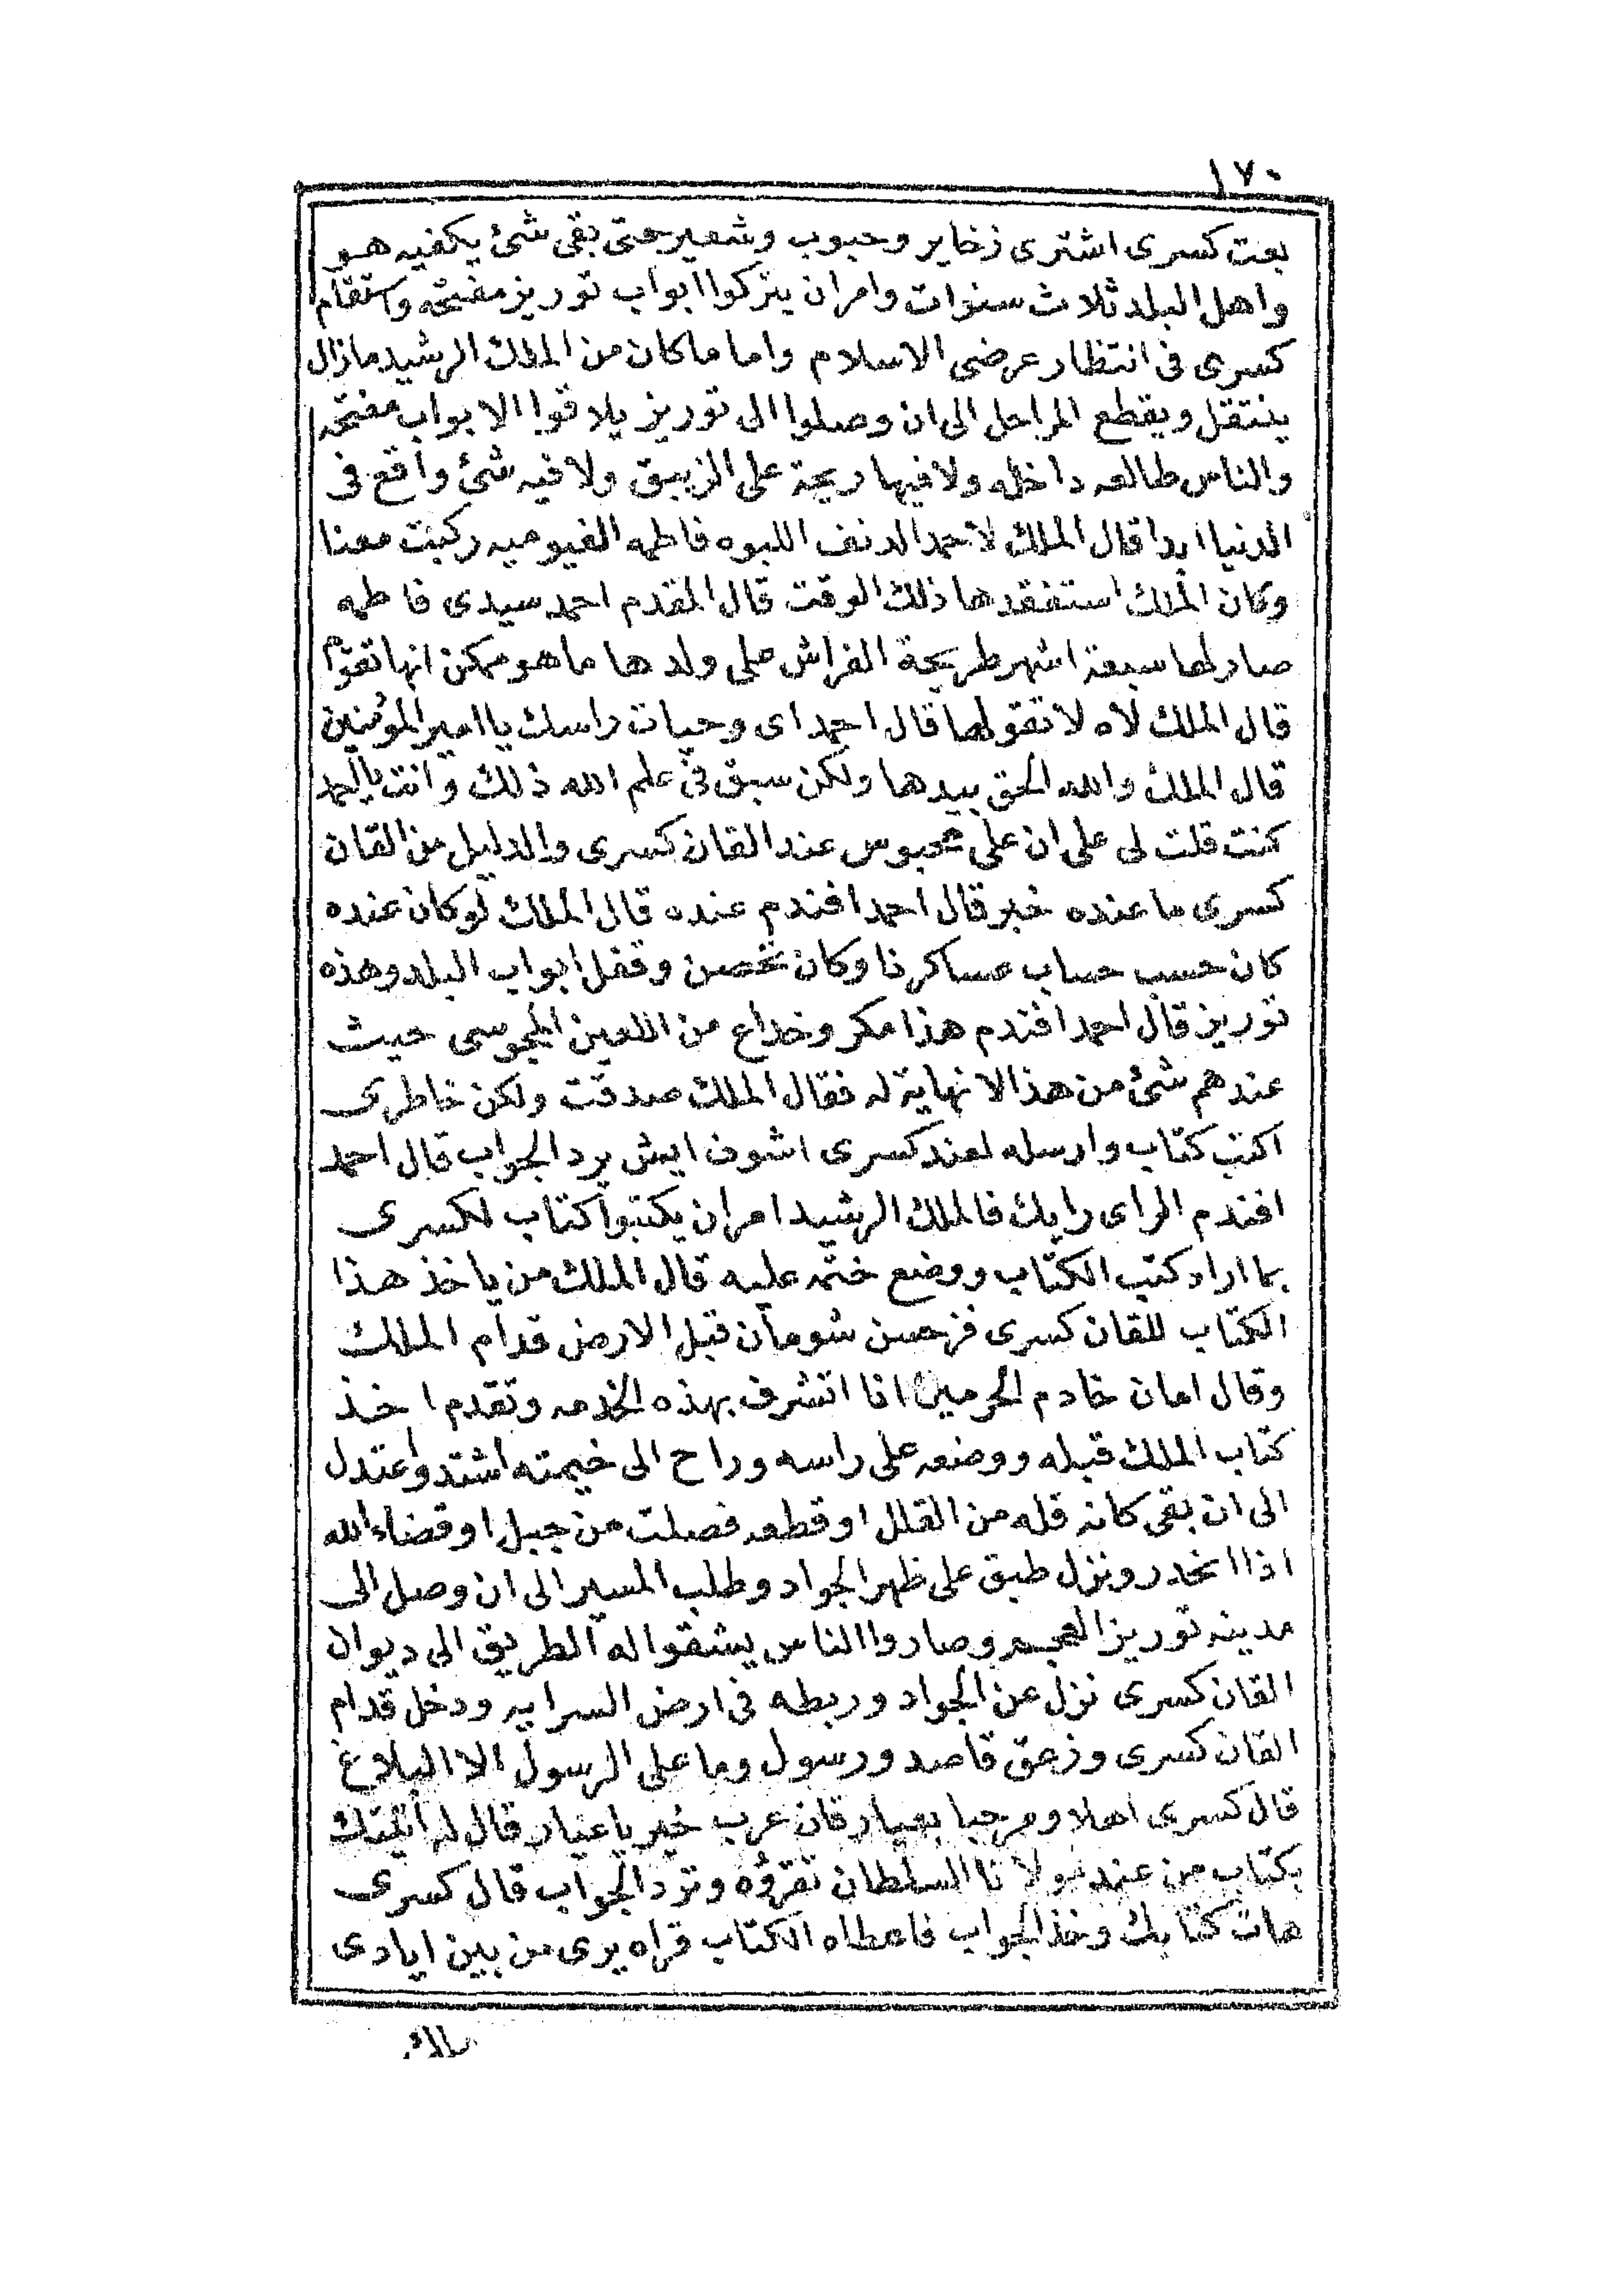 ١٧٠
بعت كسرى اشترى زخاير وحبوب وشعير حتى بقى شئ يكفيه هو
واهل البلد ثلاث سنوات وامران يتركوا ابواب توريز مفتحه واستقام
كسرى فى انتظار عرضى الاسلام واما ماكان من الملك الرشيد مازال
ينتقل ويقطع المراحل الى ان وصلوا الى توريز يلاقوا الابواب مفتحه
والناس طالعه داخله ولا فيها ريحة على الزيبق ولا فيه شئ واقع فى
الدنيا ابدا قال الملك لاحمد الدنف اللبوه فاطمه الفيوميه ركبت معنا
وكان الملك استفقدها ذلك الوقت قال المقدم احمد سيدى فاطمه
صار لها سبعة اشهر طريحة الفراش على ولدها ما هو ممكن انها تقوم
قال الملك لاه لا تقولها قال احمد اى وحيات راسك يا امير المؤمنين
قال الملك والله الحق بيدها ولكن سبق فى علم الله ذلك وانت يا احمد
كنت قلت لى على ان على محبوس عند القان كسرى والدليل من القان
كسرى ما عنده خبر قال احمد افندم عنده قال الملك لوكان عنده
كان حسب حساب عساكرنا وكان تحصن وقفل ابواب البلد وهذه
توريز قال احمد افندم هذا مكر وخداع من اللعين المجوسى حيث
عندهم شئ من هذا لا نهاية له فقال الملك صدقت ولكن خاطرى
اكتب كتاب وارسله لعند كسرى اشوف ايش يرد الجواب قال احمد
افندم الراى رايك فالملك الرشيد امران يكتبوا كتاب لكسرى
بما اراد كتب الكتاب ووضع ختمه عليه قال الملك من ياخذ هذا
الكتاب للقان كسرى فز حسن شومان قبل الارض قدام الملك
وقال امان خادم الحرمين انا اتشرف بهذه الخدمه وتقدم اخذ
كتاب الملك قبله ووضعه على راسه وراح الى خيمته اشتد واعتدل
الى ان بقى كانه قله من القلل او قطعه فصلت من جبل او قضاء الله
اذا انحدر ونزل طبق على ظهر الجواد وطلب المسير الى ان وصل الى
مدينه توريز العجم وصاروا الناس يشقوا له الطريق الى ديوان
القان كسرى نزل عن الجواد وربطه فى ارض السرايه ودخل قدام
القان كسرى وزعق قاصد ورسول وما على الرسول الا البلاغ
قال كسرى اهلا ومرحبا بعيار قان عرب خير يا عيار قال له اتيتك
بكتاب من عند مولانا السلطان تقرؤه وترد الجواب قال كسرى
هات كتابك وخذ الجواب فاعطاه الكتاب قراه يرى من بين ايادى